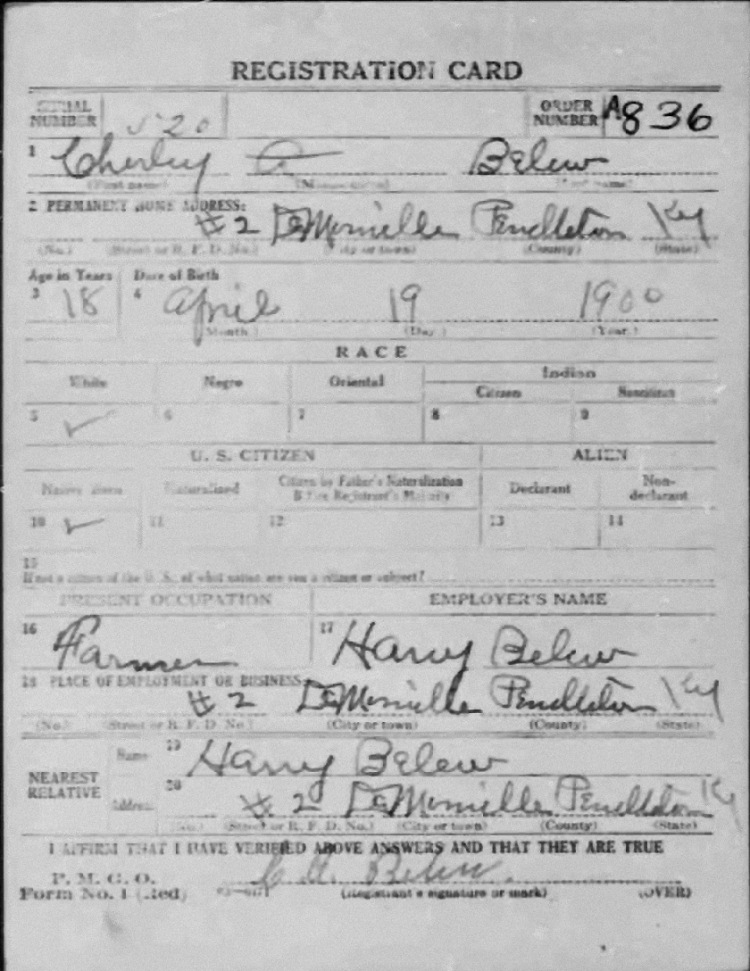 REGISTRATION CARD
SERIAL NUMBER 520 ORDER NUMBER A836
1 Cherley A Belew
(First name) (Middle name) (Last name)
2 PERMANENT HOME ADDRESS:
#2 DeMornielle Pendleton Ky
(No.) (Street or R. F. D. No.) (City or town) (County) (State)
Age in Years Date of Birth
3 18 4 April 19 1900
(Month.) (Day.) (Year.)
RACE
White Negro Oriental Indian
Citizen Noncitizen
5 ✓ 6 7 8 9
U. S. CITIZEN ALIEN
Native Born Naturalized Citizen by Father's Naturalization Before Registrant's Majority Declarant Non-declarant
10 ✓ 11 12 13 14
15
If not a citizen of the U. S., of what nation are you a citizen or subject?
PRESENT OCCUPATION EMPLOYER'S NAME
16 Farmer 17 Harry Belew
18 PLACE OF EMPLOYMENT OR BUSINESS:
#2 DeMornielle Pendleton Ky
(No.) (Street or R. F. D. No.) (City or town) (County) (State)
NEAREST RELATIVE
Name 19 Harry Belew
Address 20 #2 DeMornielle Pendleton Ky
(No.) (Street or R. F. D. No.) (City or town) (County) (State)
I AFFIRM THAT I HAVE VERIFIED ABOVE ANSWERS AND THAT THEY ARE TRUE
P. M. G. O.
Form No. 1 (Red) C A Belew
(Registrant's signature or mark) (OVER)